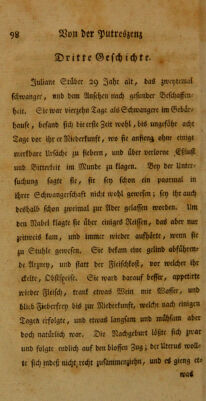 98 Von der Putrescenz
Dritte Geschichte.
Juliane Stüber 29 Jahr alt, das zweytemal
schwanger, und dem Ansehen nach gesunder Beschaffen-
heit. Sie war vierzehn Tage als Schwangere im Gebär-
hause, befand sich die erste Zeit wohl, bis ungefähr acht
Tage vor ihrer Niederkunft, wo sie anfieng ohne einige
merkbare Ursache zu fiebern, und über verlorne Eßlust
und Bitterkeit im Munde zu klagen. Bey der Unter-
suchung sagte sie, sie sey schon mehrmal in
ihrer Schwangerschaft nicht wohl gewesen; sey ihr auch
deshalb schon zweimal zur Ader gelassen worden. Um
den Nabel klagte sie über einiges Reissen, das aber nur
zeitweis kam, und immer wieder aufhörte, wenn sie
zu Stuhle gewesen. Sie bekam eine gelind abführen-
de Arzney, und statt der Fleischkost, vor welcher ihr
ekelte, Obstspeise. Sie ward darauf besser, appetirte
wieder Fleisch, trank etwas Wein mit Wasser, und
blieb Fieberfrey bis zur Niederkunft, welche nach einigen
Tagen erfolgte, und etwas langsam und mühsam aber
doch natürlich war. Die Nachgeburt lößte sich zwar
und folgte endlich auf den blossen Zug; der Uterus woll-
te sich indeß nicht recht zusammenziehn, und es gieng et-
was